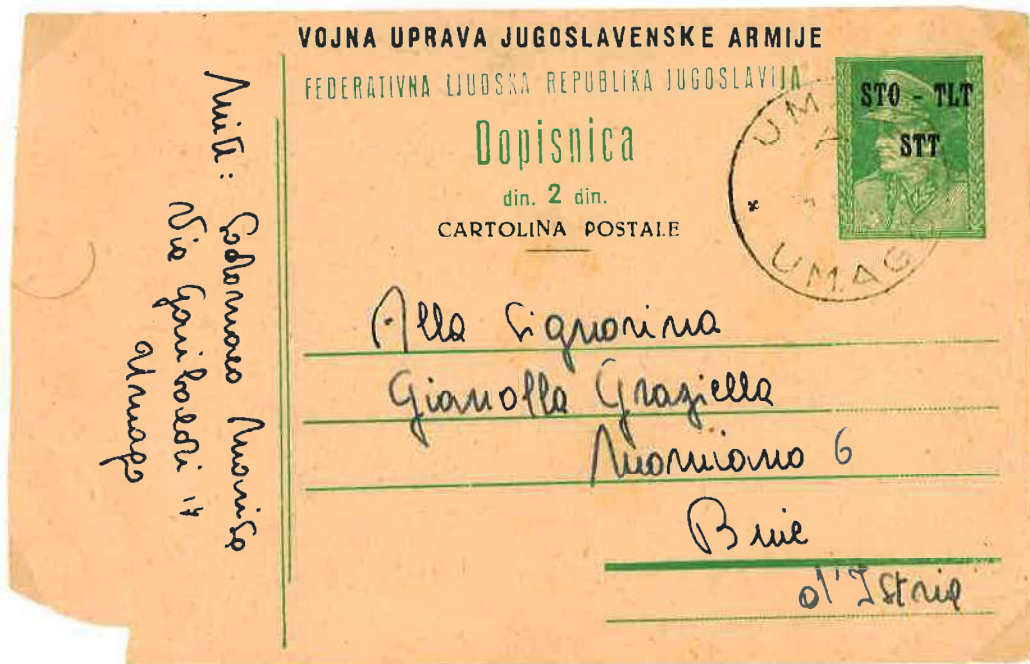 VOJNA UPRAVA JUGOSLAVENSKE ARMIJE
FEDERATIVNA LJUDSKA REPUBLIKA JUGOSLAVIJA
Dopisnica
din. 2 din.
CARTOLINA POSTALE
STO - TLT
STT
UMAG
UMAGO
Alla Signorina
Gianolla Graziella
Momiano 6
Buie
d'Istria
Mitt:
Via Garibaldi 17
Umago